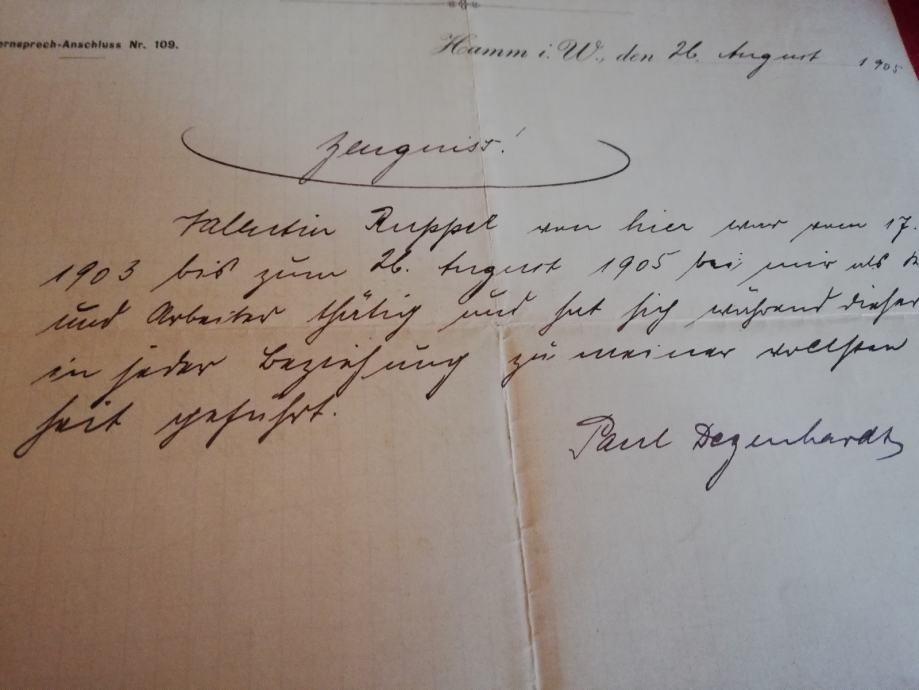 ernsprech-Anschluss Nr. 109.
Hamm i. W., den 26. August 1905
Zeugniss!
Valentin Ruppel von hier war vom 17.
1903 bis zum 26. August 1905 bei mir als
und Arbeiter thätig und hat sich während dieser
in jeder Beziehung zu meiner vollsten
heit geführt.
Paul Degenhardt